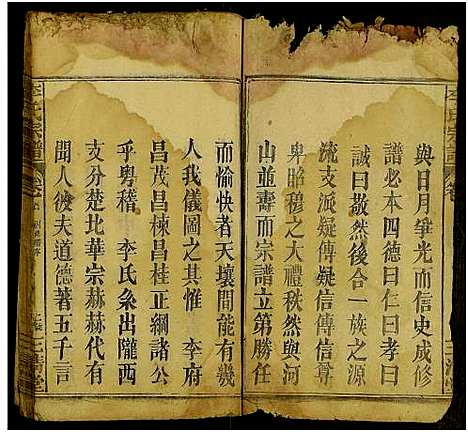 與日月爭光而信史成修
譜必本四德曰仁曰孝曰
誠曰敬然後合一族之源
流支派疑傳疑信傳信尊
卑昭穆之大禮秩然與河
山並壽而宗譜立第勝任
而愉快者天壤間能有幾
人我儀圖之其惟 李府
昌茂昌棟昌桂正綱諸公
乎粤稽 李氏系出隴西
支分楚北華宗赫赫代有
聞人彼夫道德著五千言
李氏宗譜